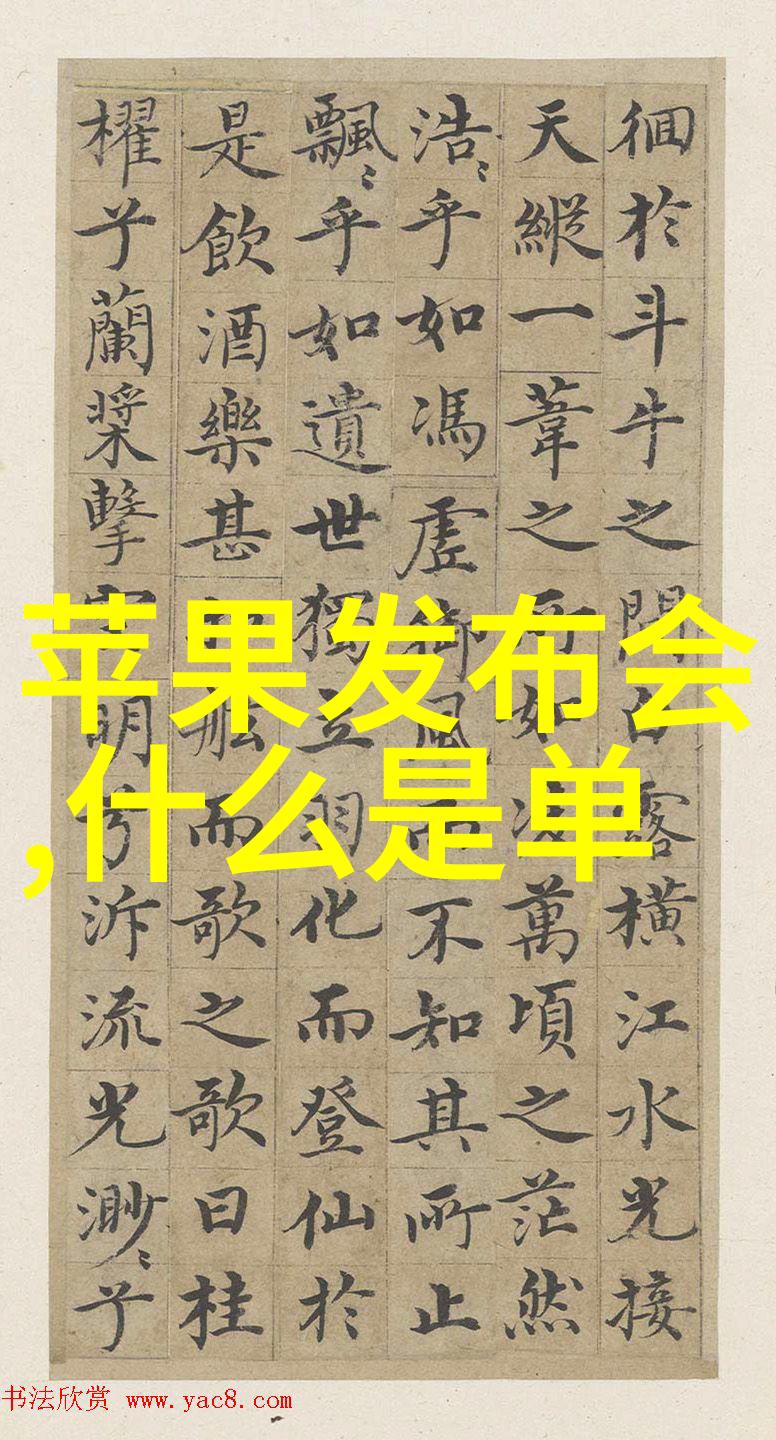 徊於斗牛之間白露橫江水光接
天縱一葦之所如凌萬頃之茫然
浩〻乎如馮虛御風而不知其所止
飄〻乎如遺世獨立羽化而登仙於
是飲酒樂甚扣舷而歌之歌曰桂
櫂兮蘭槳擊空明兮泝流光渺〻兮
苹果发布会
,什么是单
书法欣赏 www.yac8.com